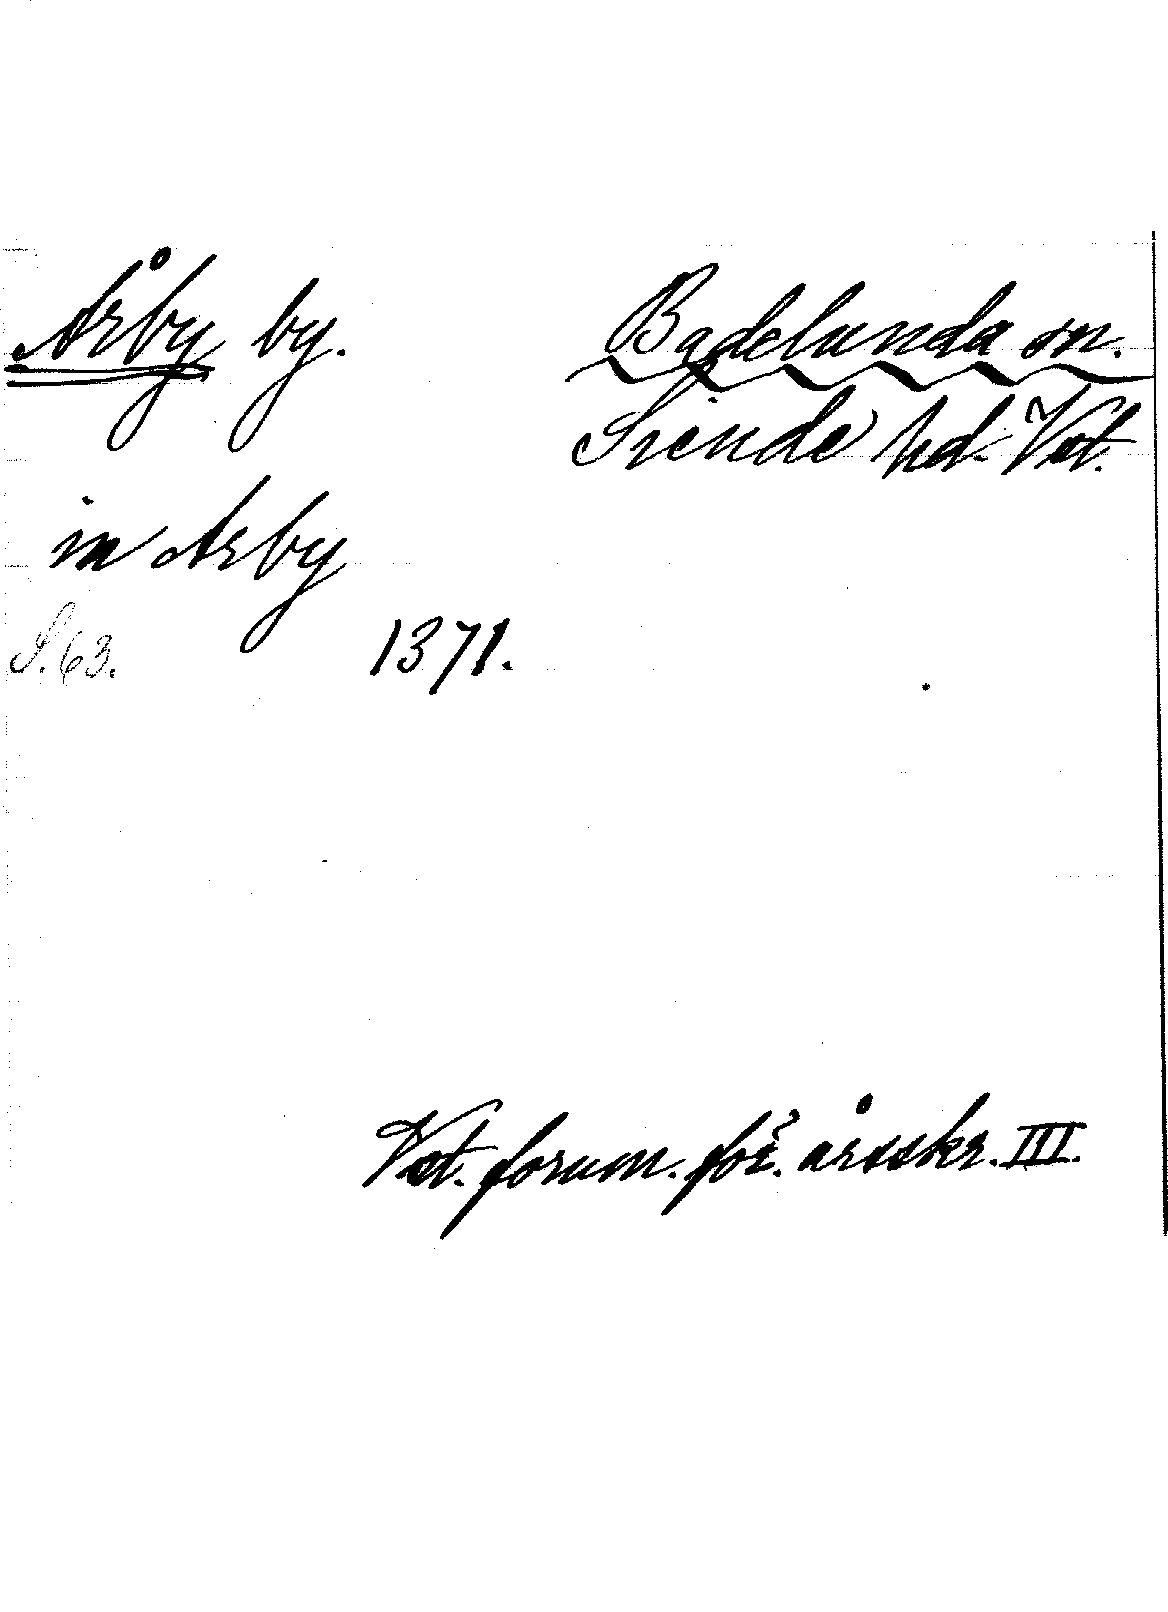 Årby by. Badelunda sn.
Siende hd. Vst.
in Arby
S. 63. 1371.
Vst. fornm.för. årsskr. III.